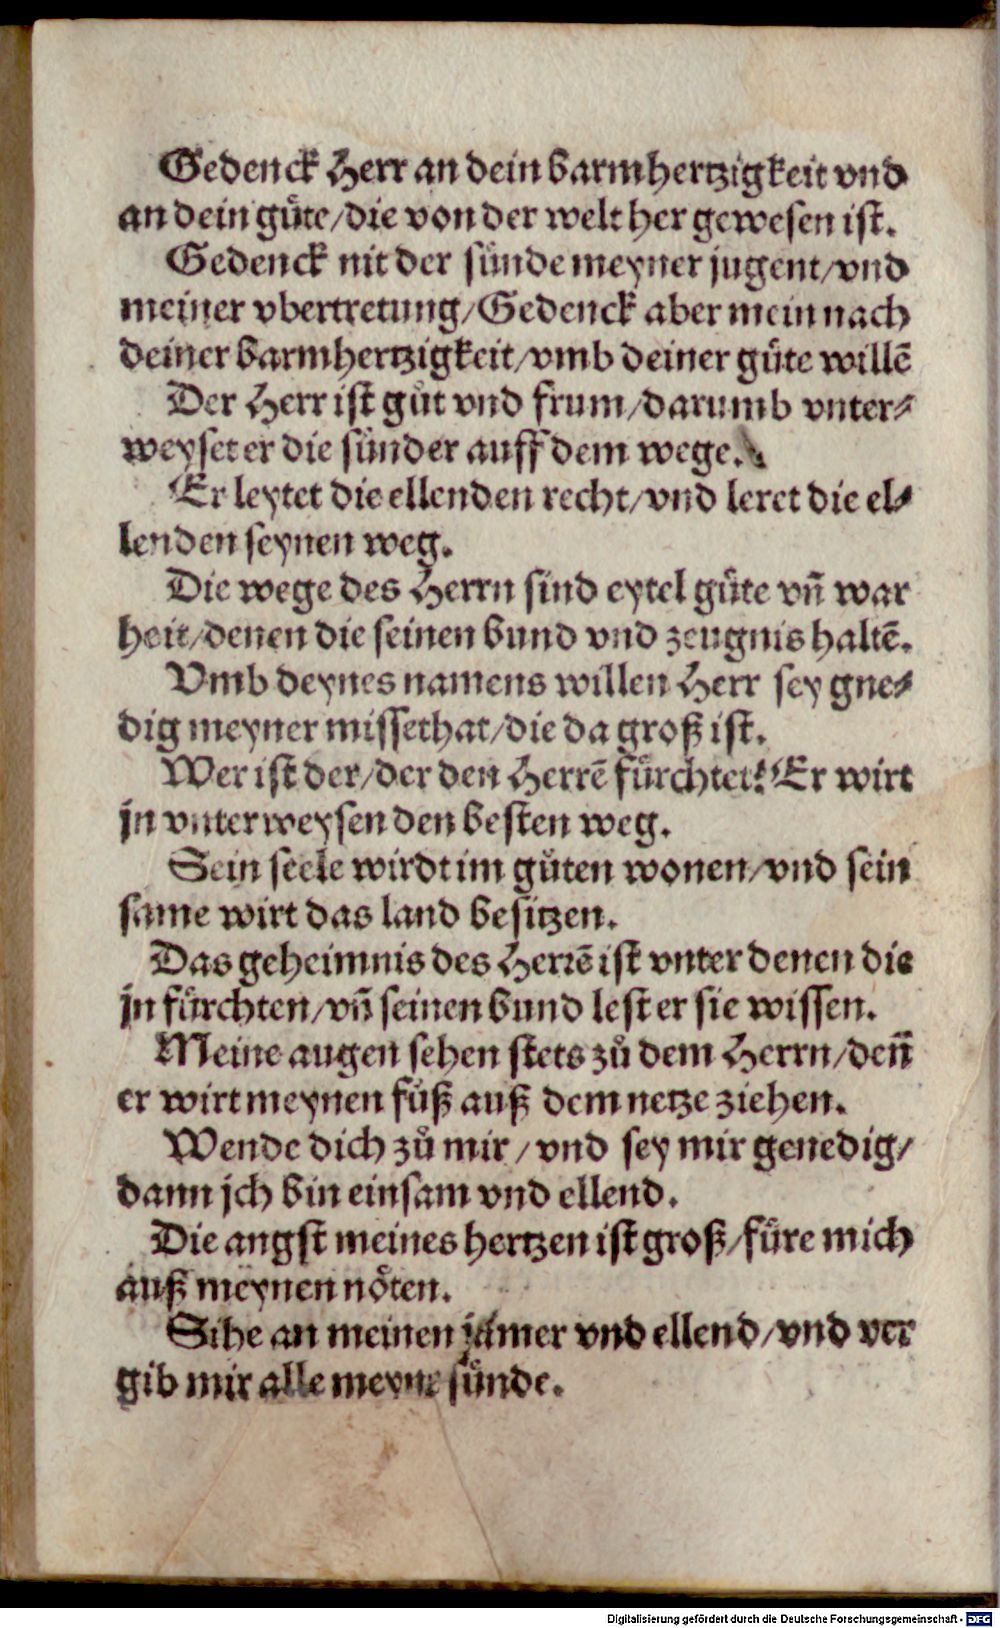 Gedenck Herr an dein barmhertzigkeit vnd
an dein guͤte/die von der welt her gewesen ist.
Gedenck nit der suͤnde meyner jugent/vnd
meiner vbertretung/Gedenck aber mein nach
deiner barmhertzigkeit/vmb deiner guͤte willē
Der Herr ist guͦt vnd frum/darumb vnter⸗
weyset er die suͤnder auff dem wege.
Er leytet die ellenden recht/vnd leret die el⸗
lenden seynen weg.
Die wege des Herrn sind eytel guͤte vñ war
heit/denen die seinen bund vnd zeugnis haltē.
Vmb deynes namens willen Herr sey gne⸗
dig meyner missethat/die da groß ist.
Wer ist der/der den Herrē fuͤrchtet? Er wirt
jn vnterweysen den besten weg.
Sein seele wirdt im guͦten wonen/vnd sein
same wirt das land besitzen.
Das geheimnis des Herrē ist vnter denen die
jn fuͤrchten/vñ seinen bund lest er sie wissen.
Meine augen sehen stets zuͦ dem Herrn/deñ
er wirt meynen fuͦß auß dem netze ziehen.
Wende dich zuͦ mir/vnd sey mir genedig/
dann jch bin einsam vnd ellend.
Die angst meines hertzen ist groß/fuͤre mich
auß meynen noͤten.
Sihe an meinen jamer vnd ellend/vnd ver
gib mir alle meyne suͤnde.
Digitalisierung gefördert durch die Deutsche Forschungsgemeinschaft - DFG